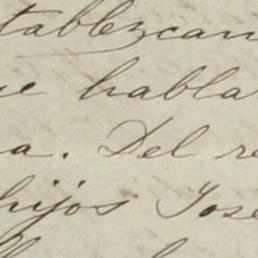 tablezcan
ue habla
a. Del re
hijos Jose